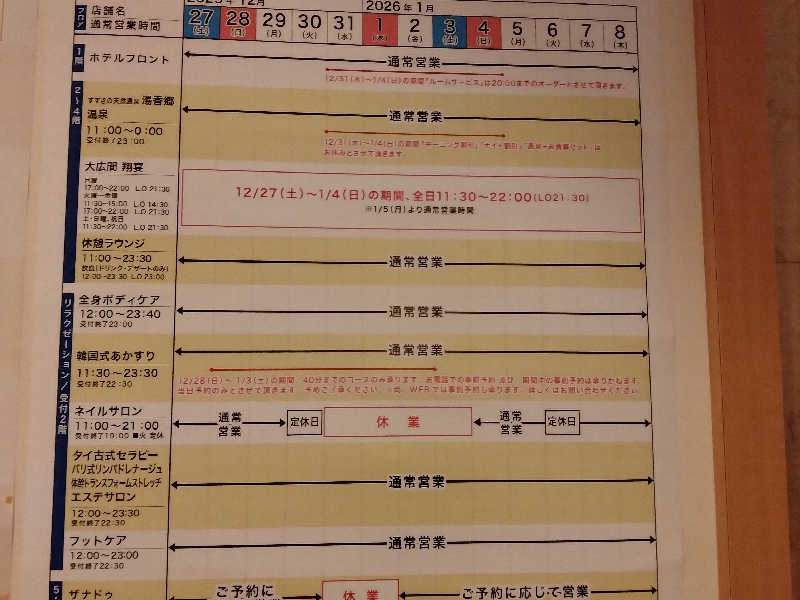 フロア
店舗名
通常営業時間
2025年 12月
2026年 1月
27 28 29 30 31 1 2 3 4 5 6 7 8
(土) (日) (月) (火) (水) (木) (金) (土) (日) (月) (火) (水) (木)
1階
ホテルフロント
通常営業
12/31(水)～1/4(日)の期間"ルームサービス"は20:00までのオーダーとさせて頂きます。
2～4階
すすきの天然温泉 湯香郷
温泉
11:00～0:00
受付終了23:00
通常営業
12/31(水)～1/4(日)の期間
お休みとさせて頂きます。
大広間 翔宴
月曜
17:00～22:00 L.O 21:30
火曜～金曜
11:30～15:00 L.O 14:30
17:00～22:00 L.O 21:30
土・日曜、祝日
11:30～22:00 L.O 21:30
12/27(土)～1/4(日)の期間、全日11:30～22:00(LO21:30)
※1/5(月)より通常営業時間
休憩ラウンジ
11:00～23:30
飲食(ドリンク・デザートのみ)
12:00～23:30 L.O 23:00
通常営業
リラクゼーション/受付2階
全身ボディケア
12:00～23:40
受付終了23:00
通常営業
韓国式あかすり
11:30～23:30
受付終了22:30
通常営業
12/28(日)～1/3(土)の期間、40分までのコースのみ承ります。お電話での事前予約 及び 期間中の事前予約は承りかねます。
当日予約のみとさせて頂きます。予めご了承ください。
ネイルサロン
11:00～21:00
受付終了19:00 ■火 定休
通常
営業
定休日
休 業
通常
営業
定休日
タイ古式セラピー
バリ式リンパドレナージュ
体幹トランスフォームストレッチ
エステサロン
12:00～23:30
受付終了22:30
通常営業
フットケア
12:00～23:00
受付終了22:30
通常営業
5・
ザナドゥ
ご予約に
休 業
ご予約に応じて営業